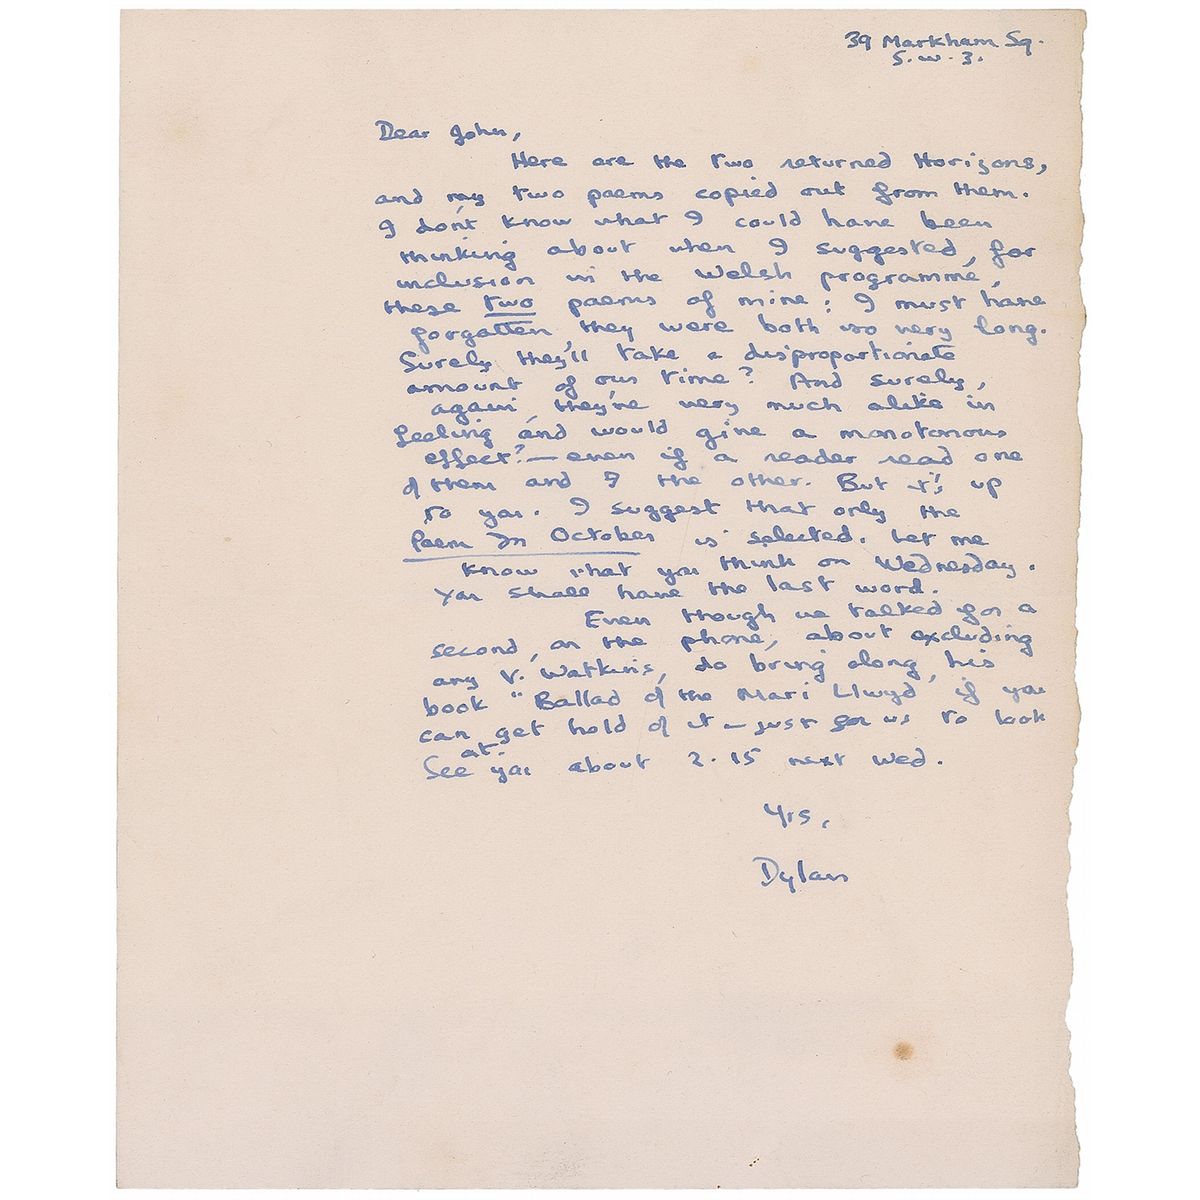 39 Markham Sq.
S.W.3.
Dear John,
Here are the two returned Horizons,
and my two poems copied out from them.
I don't know what I could have been
thinking about when I suggested, for
inclusion in the Welsh programme,
these two poems of mine: I must have
forgotten they were both so very long.
Surely they'll take a disproportionate
amount of our time? And surely,
again, they're very much alike in
feeling and would give a monotonous
effect? — even if a reader read one
of them and I the other. But it's up
to you. I suggest that only the
Poem In October is selected. Let me
know what you think on Wednesday.
You shall have the last word.
Even though we talked for a
second, on the phone, about excluding
any V. Watkins, do bring along his
book "Ballad of the Mari Llwyd" if you
can get hold of it — just for us to look
at.
See you about 2.15 next Wed.
Yrs,
Dylan